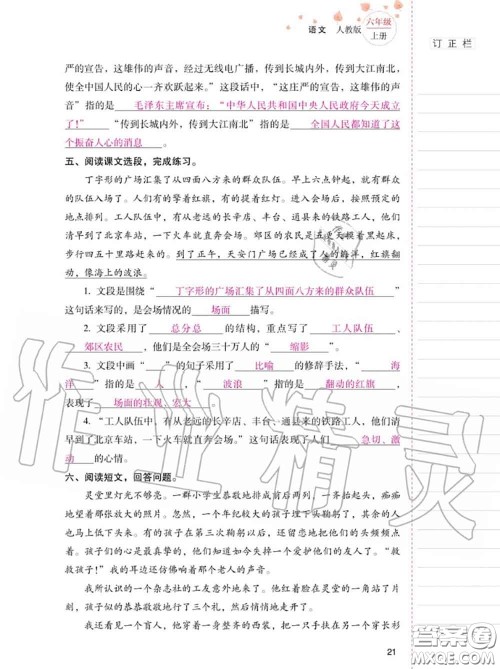 语文 人教版 六年级 上册
订正栏
严的宣告，这雄伟的声音，经过无线电广播，传到长城内外，传到大江南北，
使全中国人民的心一齐欢跃起来。”这段话中，“这庄严的宣告，这雄伟的
声音”指的是 毛泽东主席宣布：“中华人民共和国中央人民政府今天成立
了！” “传到长城内外，传到大江南北”指的是 全国人民都知道了这
个振奋人心的消息 。
五、阅读课文选段，完成练习。
丁字形的广场汇集了从四面八方来的群众队伍。早上六点钟起，就有群众
的队伍入场了。人们有的擎着红旗，有的提着红灯。进入会场后，按照预定的
地点排列。工人队伍中，有从老远的长辛店、丰台、通县来的铁路工人，他们
清早到了北京车站，一下火车就直奔会场。郊区的农民是五更天摸着黑起床，
步行四五十里路赶来的。到了正午，天安门广场已经成了人的海洋，红旗翻
动，像海上的波浪。
1. 文段是围绕“ 丁字形的广场汇集了从四面八方来的群众队伍 ”
这句话来写的，是会场情况的 场面 描写。
2. 文段采用了 总分总 的结构，重点写了 工人队伍 、
郊区农民 ，他们是全会场三十万人的“ 缩影 ”。
3. 文段中画“ ”的句子采用了 比喻 的修辞手法，“ 海
洋 ”指的是 人 ，“ 波浪 ”指的是 翻动的红旗 ，
表现了 场面的壮观、宏大 。
4. “工人队伍中，有从老远的长辛店、丰台、通县来的铁路工人，他们清
早到了北京车站，一下火车就直奔会场。”这句话表现了人们 急切、激
动 的心情。
六、阅读短文，回答问题。
灵堂里灯光不够亮。一群小学生恭敬地排成前后两列，一齐抬起头，痴痴
地望着那张放大的照片。忽然，一个年纪较大的孩子埋下头鞠躬了，其余的人
也马上低下头来。有的孩子在第三次鞠躬以后，还留恋地把他们的头频频点
着。孩子们的心是最真挚的。他们知道如今失掉一个爱护他们的友人了。“救
救孩子！”我的耳边还仿佛响着那个老人的声音。
我所认识的一个杂志社的工友意外地来了。他红着脸在灵堂的一角站了片
刻，孩子似的恭恭敬敬地行了三个礼，然后悄悄地走开了。
我还看见一个盲人，他穿着一身整齐的西装，把一只手扶在另一个穿长衫
21
作业精灵
答案圈
MXQE.COM